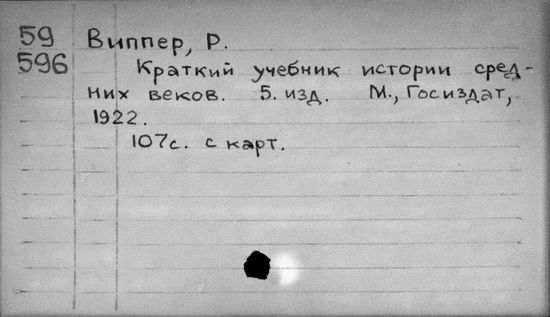 59 Виппер, Р.
596 Краткий учебник истории сред-
них веков. 5. изд. М., Госиздат,
1922.
107с. с карт.